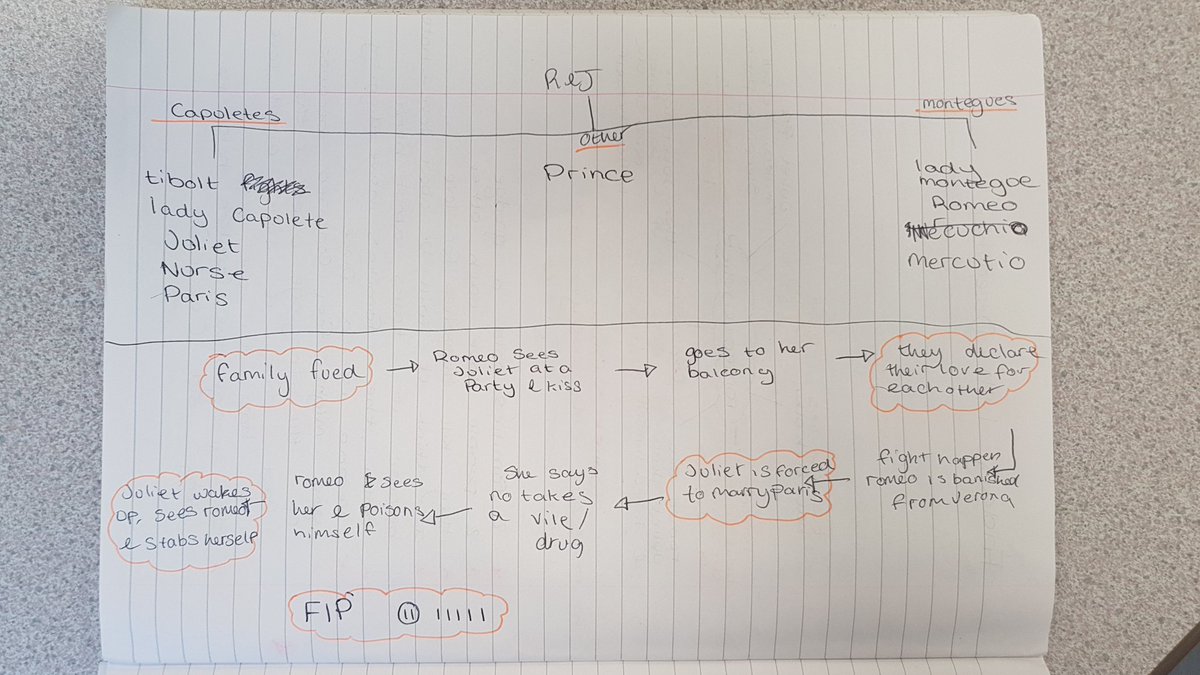 R&J
Capoletes
montegoes
Other
tibolt
lady Capolete
Joliet
Nurse
Paris
Prince
lady
montegoe
Romeo
mercutio
family fued
Romeo Sees
Joliet at a
Party & kiss
goes to her
balcony
they declare
their love for
each other
fight happen
romeo is banished
from verona
Joliet is forced
to marry Paris
She says
no takes
a vile/
drug
romeo sees
her & Poisons
himself
Joliet wakes
up, sees romeo
& stabs herself
FIP